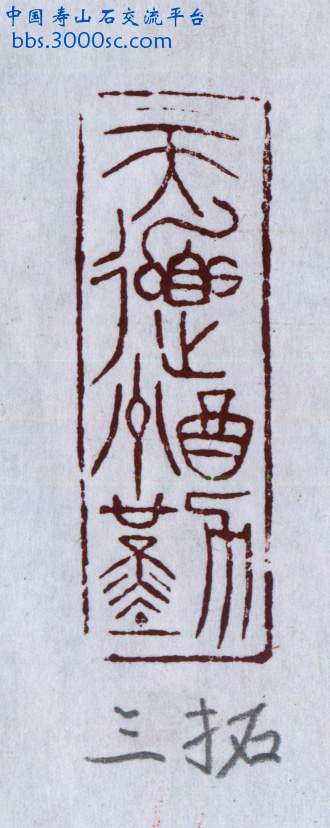 中国寿山石交流平台
bbs.3000sc.com
天道酬勤
三拓